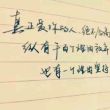 真正爱你的人,绝不会
纵有千百个理由放弃
也有一个理由坚持